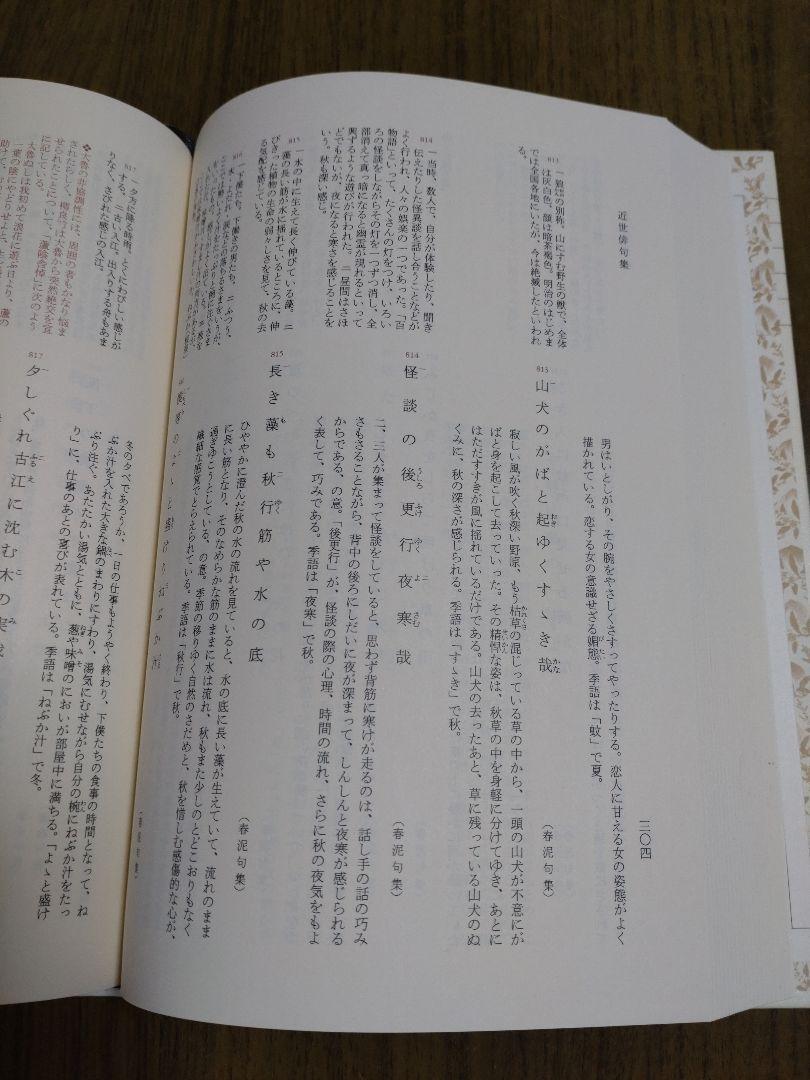 近世俳句集
三〇四
男はいとしがり、その腕をやさしくさすってやったりする。恋人に甘える女の姿態がよく
描かれている。恋する女の意識せざる媚態。季語は「蚊」で夏。
813
一 狼の別称。山にすむ野生の獣で、全体
は灰白色、顔は暗茶褐色。明治のはじめま
では全国各地にいたが、今は絶滅したといわれ
る。
813 山犬のがばと起ゆくすゝき哉
(春泥句集)
寂しい風が吹く秋深い野原、もう枯草の混じっている草の中から、一頭の山犬が不意にが
ばと身を起こして去っていった。その精悍な姿は、秋草の中を身軽に分けてゆき、あとに
はただすすきが風に揺れているだけである。山犬の去ったあと、草に残っている山犬のぬ
くみに、秋の深さが感じられる。季語は「すゝき」で秋。
814
一 当時、数人で、自分が体験したり、聞き
伝えたりした怪異談を話し合うことなどが
よく行われ、人々の娯楽の一つであった。「百
物語」といって、たくさんの灯をつけ、いろい
ろの怪談をしながらその灯を一つずつ消し、全
部消えて真っ暗になると幽霊が現れるといって
興ずるような遊びが行われた。 二 昼間はさほ
どでもないが、夜になると寒さを感じることを
いう。秋も深い感じ。
814 怪談の後更行夜寒哉
(春泥句集)
二、三人が集まって怪談をしていると、思わず背筋に寒けが走るのは、話し手の話の巧み
さもさることながら、背中の後ろにしだいに夜が深まって、しんしんと夜寒が感じられる
からである、の意。「後更行」が、怪談の際の心理、時間の流れ、さらに秋の夜気をもよ
く表して、巧みである。季語は「夜寒」で秋。
815
一 水の中に生えて長く伸びている藻。 二
藻の長い筋が水に揺れているところに、伸
びきった植物の生命の弱々しさを見て、秋の去
る気配を感じている。
815 長き藻も秋行筋や水の底
(春泥句集)
ひややかに澄んだ秋の水の流れを見ていると、水の底に長い藻が生えていて、流れのまま
に長い筋となり、そのなめらかな筋のままに水は流れ、秋もまた少しのとどこおりもなく
過ぎゆこうとしている、の意。季節の移りゆく自然のさだめと、秋を惜しむ感傷的な心が、
繊細な感覚でとらえられている。季語は「秋行」で秋。
816
一 下僕たち。下働きの男たち。
冬の夕べであろうか、一日の仕事もようやく終わり、下僕たちの食事の時間となって、ね
ぶか汁を入れた大きな鍋のまわりにすわり、湯気にむせながら自分の椀にねぶか汁をたっ
ぷり注ぐ。あたたかい湯気とともに、葱や味噌のにおいが部屋中に満ちる。「よゝと盛け
り」に、仕事のあとの喜びが表れている。季語は「ねぶか汁」で冬。
817
一 夕方に降る時雨。とくにわびしい感じが
する。 二 古い入江。出入りする舟もあま
りなく、さびれた感じの入江。
❖大魯の非協調性には、周囲の者もかなり悩ま
されたらしく、几董は大魯から突然絶交を宣
せられたことについて、「蘆陰舎悼」に次のよう
に記している。
817 夕しぐれ古江に沈む木の実哉